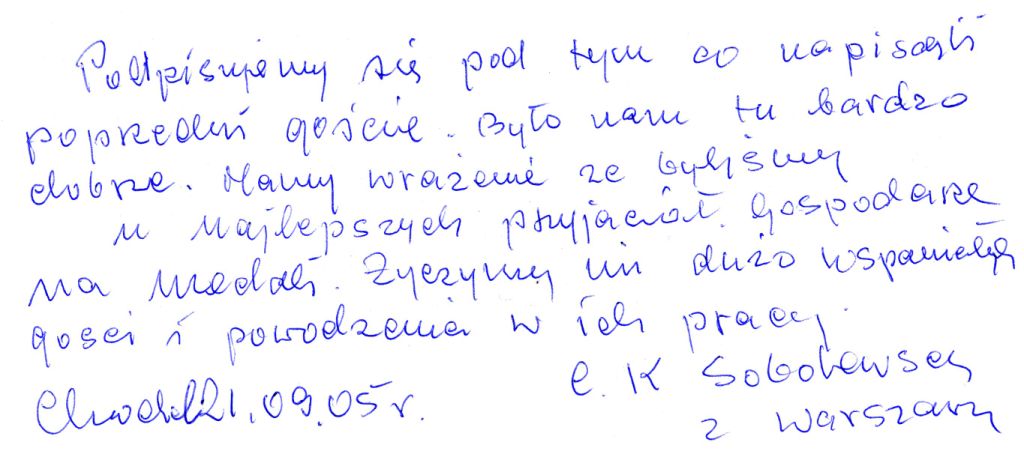 Podpisujemy się pod tym co napisali
poprzedni goście. Było nam tu bardzo
dobrze. Mamy wrażenie ze byliśmy
u najlepszych przyjaciół. Gospodarze
na medal. Życzymy im dużo wspaniałych
gosci i powodzenia w ich pracy.
21.09.05 r. C. K Sobolewscy
z Warszawy